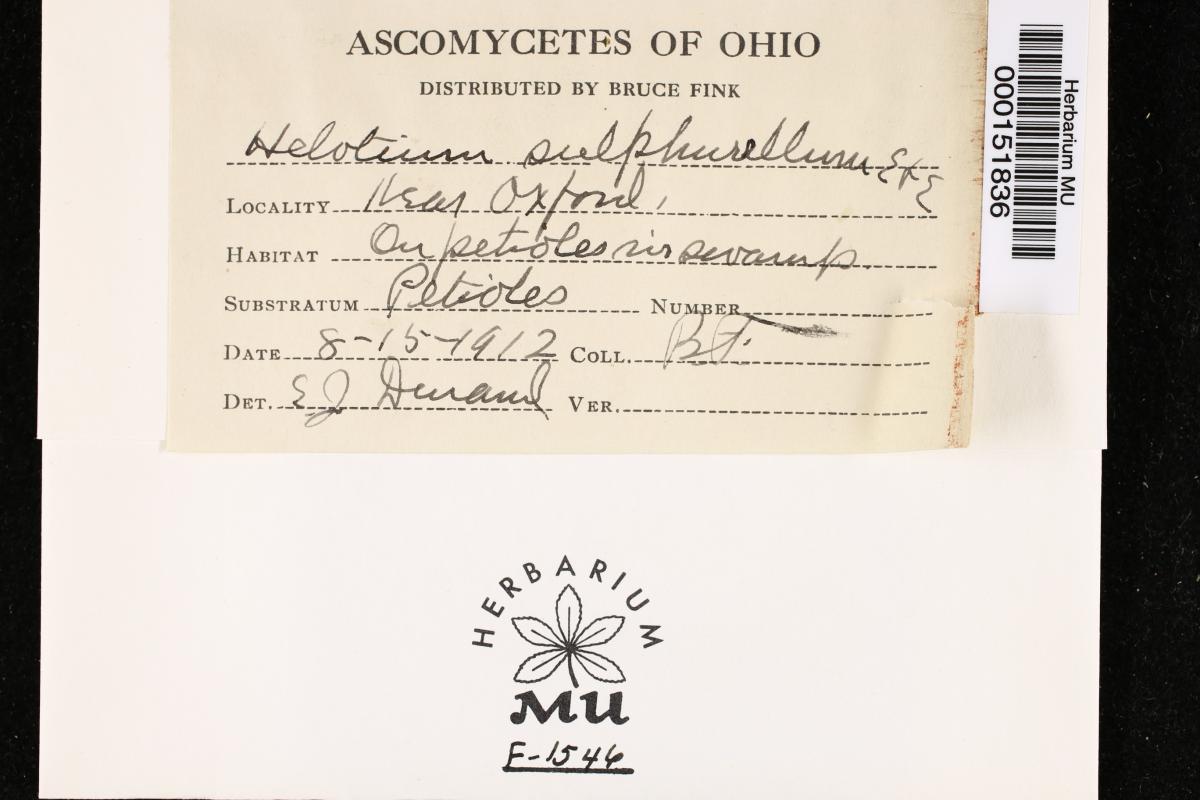 ASCOMYCETES OF OHIO
DISTRIBUTED BY BRUCE FINK
Helotium sulphurellum E & E
LOCALITY Near Oxford,
HABITAT On petioles in swamp.
SUBSTRATUM Petioles NUMBER
DATE 8-15-1912 COLL. B F.
DET. E J Durand VER.
Herbarium MU
000151836
HERBARIUM
MU
F-1546